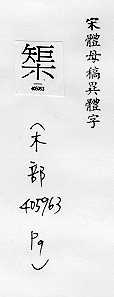 宋體母稿異體字
榘
405963
(木部 405963 Pq)